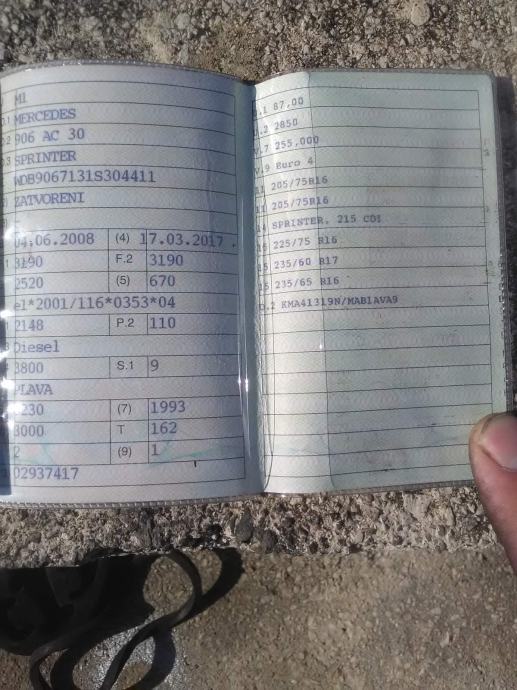 M1
MERCEDES
906 AC 30
SPRINTER
WDB9067131S304411
ZATVORENI
04.06.2008 (4) 17.03.2017.
3190 F.2 3190
2520 (5) 670
e1*2001/116*0353*04
2148 P.2 110
Diesel
3800 S.1 9
PLAVA
(7) 1993
3000 T 162
2 (9) 1
02937417
.1 87,00
.2 2850
V.7 255,000
V.9 Euro 4
205/75R16
205/75R16
SPRINTER, 215 CDI
225/75 R16
235/60 R17
235/65 R16
O.2 KMA41319N/MAB1AVA9